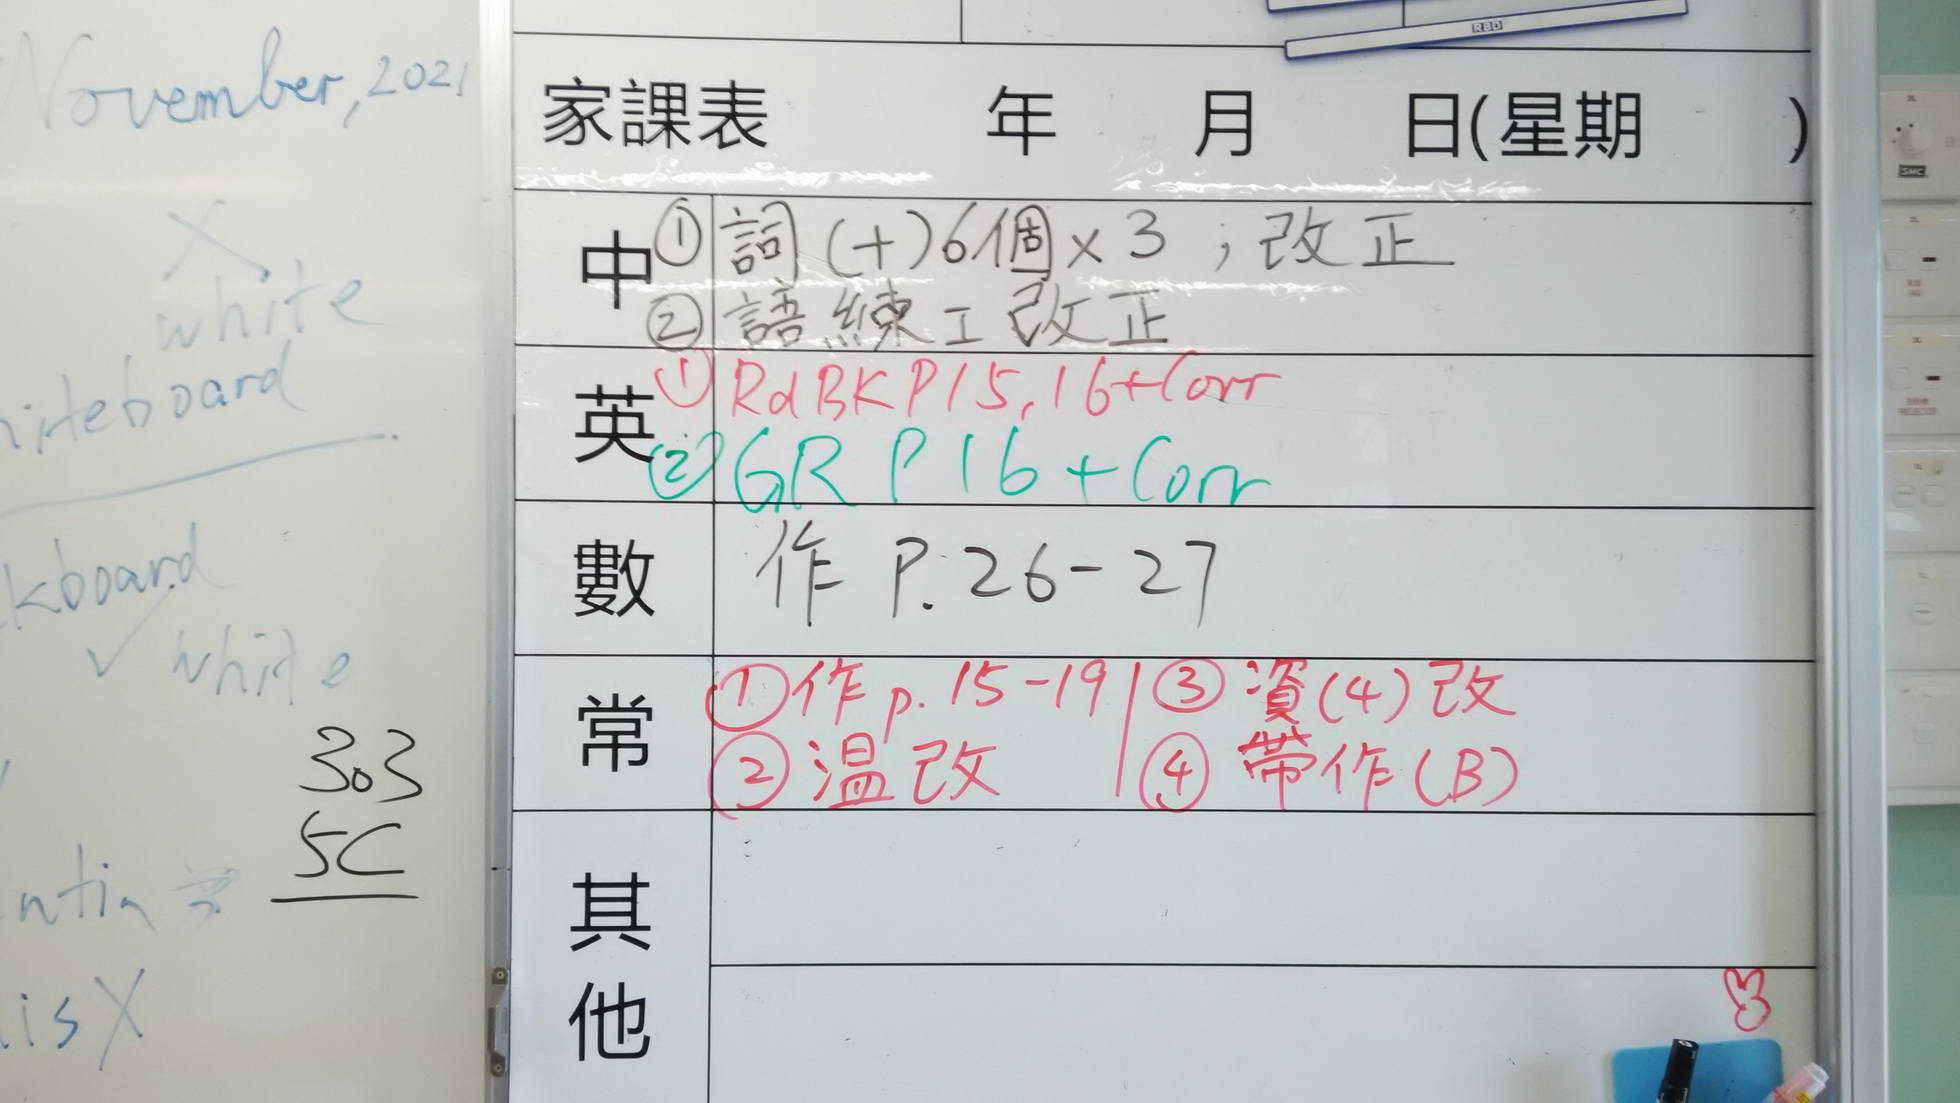 November, 2021
X
white
whiteboard
kboard
✓ white
303
5C
ntin
is X
RBD
家課表 年 月 日(星期 )
中 ① 詞(十)6個x3，改正
② 語練工改正
英 ① RdBK P15,16+Corr
② GR P16+Corr
數 作 P.26-27
常 ① 作 p.15-19 ③ 資(4)改
② 温改 ④ 帶作(B)
其他
SMC